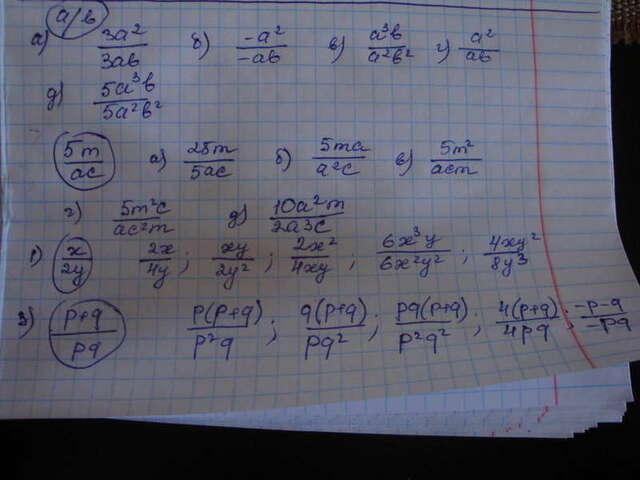 a/b
а) 3a²/3ab б) -a²/-ab в) a³b/a²b² г) a²/ab
д) 5a³b/5a²b²
5m/ac а) 25m/5ac б) 5ma/a²c в) 5m²/acm
г) 5m²c/ac²m д) 10a²m/2a³c
1) x/2y 2x/4y ; xy/2y² ; 2x²/4xy ; 6x³y/6x²y² ; 4xy²/8y³
3) p+q/pq p(p+q)/p²q ; q(p+q)/pq² ; pq(p+q)/p²q² ; 4(p+q)/4pq ; -p-q/-pq